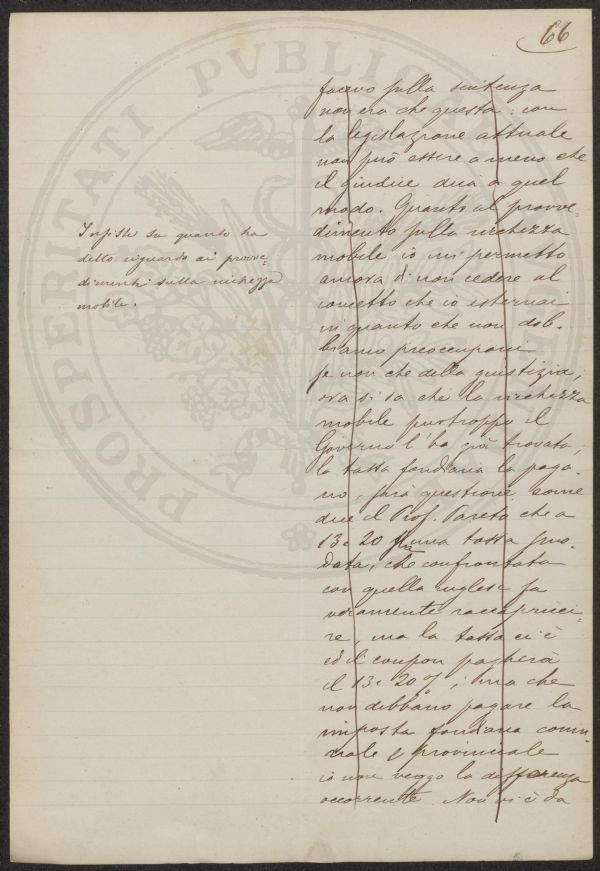 66
facevo sulla sentenza
non era che questa: con
la legislazione attuale
non può essere a meno che
il giudice dica a quel
modo. Quanto al provve=
dimento sulla ricchezza
mobile io mi permetto
ancora di non cedere al
concetto che io esternai
in quanto che non dob-
biamo preoccuparci
se non che della giustizia;
ora si sa che la ricchezza
mobile purtroppo il
Governo l'ha già trovata,
la tassa fondiaria la paga
no, sarà questione come
dice il Prof. Pareto che a
13 e 20 una tassa
data, che confrontata
con quella inglese fa
veramente raccapricci=
re, ma la tassa ci è
ed il coupon pagherà
il 13 e 20 %; ma che
non debbano pagare la
imposta fondiaria comu
nale e provinciale
io non veggo la differenza
occorrente. Non vi è da
Insiste su quanto ha
detto riguardo ai provve=
dimenti sulla ricchezza
mobile.
PROSPERITATI PVBLICAE